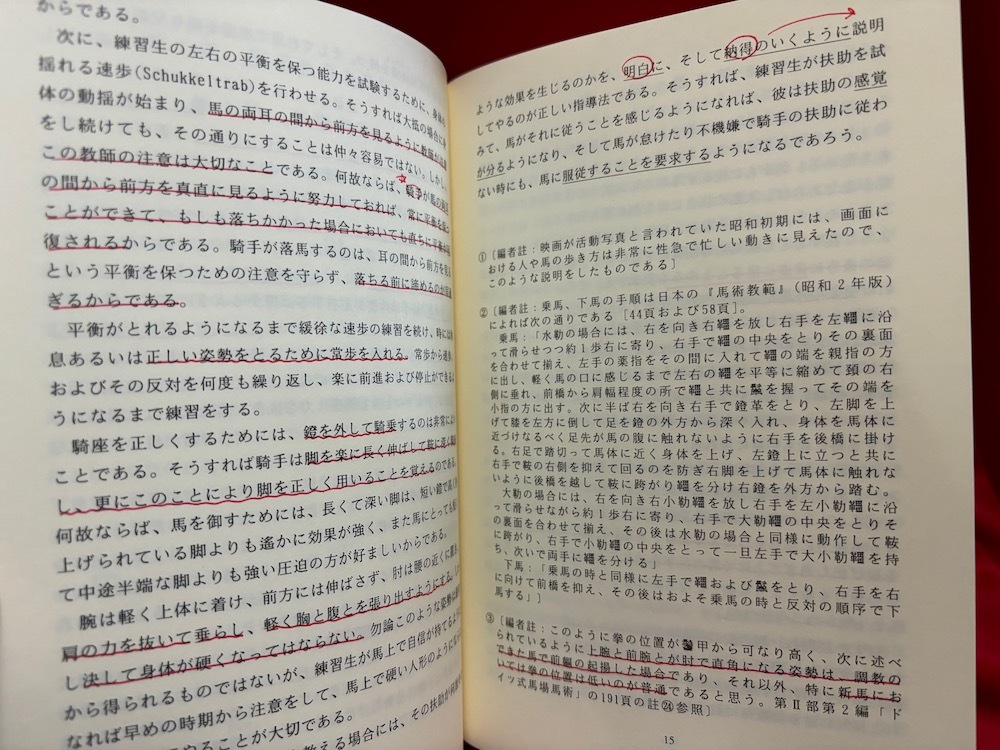 からである。
次に、練習生の左右の平衡を保つ能力を試験するために、身体の
揺れる速歩(Schukkeltrab)を行わせる。そうすれば大抵の場合に
体の動揺が始まり、馬の両耳の間から前方を見るように教師が
をし続けても、その通りにすることは仲々容易ではない。しかし、
この教師の注意は大切なことである。何故ならば、騎手が
の間から前方を真直に見るように努力しておれば、常に
ことができて、もしも落ちかかった場合においても直ちに平衡が
復されるからである。騎手が落馬するのは、耳の間から前方を
という平衡を保つための注意を守らず、落ちる前に諦めるのが
ぎるからである。
平衡がとれるようになるまで緩徐な速歩の練習を続け、時には
息あるいは正しい姿勢をとるために常歩を入れる。常歩から速歩、
およびその反対を何度も繰り返し、楽に前進および停止ができるよ
うになるまで練習をする。
騎座を正しくするためには、鐙を外して騎乗するのは非常に
ことである。そうすれば騎手は脚を楽に長く伸ばして鞍に
し、更にこのことにより脚を正しく用いることを覚えるのである。
何故ならば、馬を御すためには、長くて深い脚は、短い鐙で
上げられている脚よりも遙かに効果が強く、また馬にとっても
て中途半端な脚よりも強い圧迫の方が好ましいからである。
腕は軽く上体に着け、前方には伸ばさず、肘は腰の近くに
肩の力を抜いて垂らし、軽く胸と腹とを張り出すようにする。
し決して身体が硬くなってはならない。勿論このような姿勢は
から得られるものではないが、練習生が馬上で自信が持てるよう
なれば早めの時期から注意をして、馬上で硬い人形のように
やることが大切である。
教える場合には、その扶助が
ような効果を生じるのかを、明白に、そして納得のいくように説明
してやるのが正しい指導法である。そうすれば、練習生が扶助を試
みて、馬がそれに従うことを感じるようになれば、彼は扶助の感覚
が分るようになり、そして馬が怠けたり不機嫌で騎手の扶助に従わ
ない時にも、馬に服従することを要求するようになるであろう。
①〔編者註：映画が活動写真と言われていた昭和初期には、画面に
おける人や馬の歩き方は非常に性急で忙しい動きに見えたので、
このような説明をしたものである〕
②〔編者註：乗馬、下馬の手順は日本の『馬術教範』(昭和2年版)
によれば次の通りである［44頁および58頁］。
乗馬：「水勒の場合には、右を向き右韁を放し右手を左韁に沿
って滑らせつつ約1歩右に寄り、右手で韁の中央をとりその裏面
を合わせて揃え、左手の薬指をその間に入れて韁の端を親指の方
に出し、軽く馬の口に感じるまで左右の韁を平等に縮めて頚の右
側に垂れ、前橋から肩幅程度の所で韁と共に鬣を握ってその端を
小指の方に出す。次に半ば右を向き右手で鐙革をとり、左脚を上
げて膝を左方に倒して足を鐙の外方から深く入れ、身体を馬体に
近づけなるべく足先が馬の腹に触れないように右手を後橋に掛け
る。右足で踏切って馬体に近く身体を上げ、左鐙上に立つと共に
右手で鞍の右側を抑えて回るのを防ぎ右脚を上げて馬体に触れな
いように後橋を越して鞍に跨がり韁を分け右鐙を外方から踏む。
大勒の場合には、右を向き右小勒韁を放し右手を左小勒韁に沿
って滑らせながら約1歩右に寄り、右手で大勒韁の中央をとりそ
の裏面を合わせて揃え、その後は水勒の場合と同様に動作して鞍
に跨がり、右手で小勒韁の中央をとって一旦左手で大小勒韁を持
ち、次いで両手に韁を分ける」
下馬：「乗馬の時と同様に左手で韁および鬣をとり、右手を右
に向けて前橋を抑え、その後はおよそ乗馬の時と反対の順序で下
馬する」〕
③〔編者註：このように拳の位置が鬐甲から可なり高く、次に述べ
られているように上腕と前腕とが肘で直角になる姿勢は、調教の
できた馬で前軀の起揚した場合であり、それ以外、特に新馬にお
いては拳の位置は低いのが普通であると思う。第Ⅱ部第2編「ド
イツ式馬場馬術」の191頁の註㉔参照〕
15